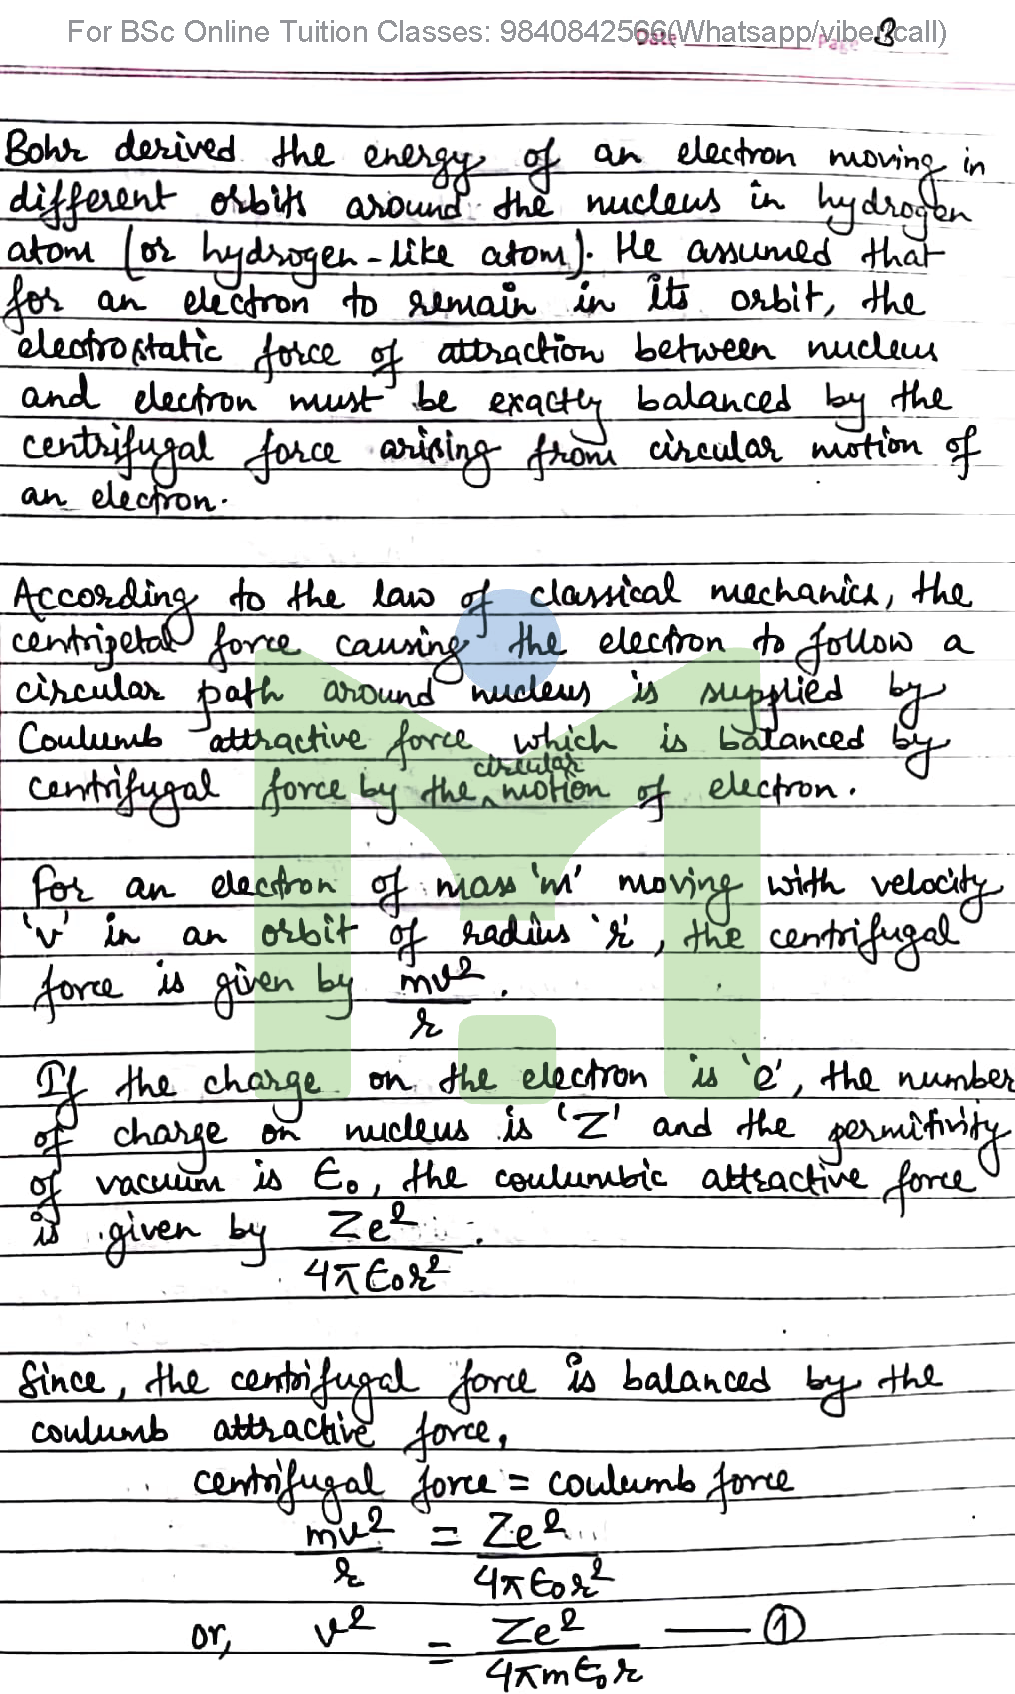 For BSc Online Tuition Classes: 9840842566(Whatsapp/viber/call)
Date Page 3
Bohr derived the energy of an electron moving in
different orbits around the nucleus in hydrogen
atom (or hydrogen-like atom). He assumed that
for an electron to remain in its orbit, the
electrostatic force of attraction between nucleus
and electron must be exactly balanced by the
centrifugal force arising from circular motion of
an electron.
According to the law of classical mechanics, the
centripetal force causing the electron to follow a
circular path around nucleus is supplied by
Coulumb attractive force which is balanced by
centrifugal force by the circular motion of electron.
For an electron of mass 'm' moving with velocity
'v' in an orbit of radius 'r', the centrifugal
force is given by mv²/r.
If the charge on the electron is 'e', the number
of charge on nucleus is 'Z' and the permitivity
of vacuum is ε₀, the coulumbic attractive force
is given by Ze²/4πε₀r².
Since, the centrifugal force is balanced by the
coulumb attractive force,
centrifugal force = coulumb force
mv²/r = Ze²/4πε₀r²
or, v² = Ze²/4πmε₀r —— ①